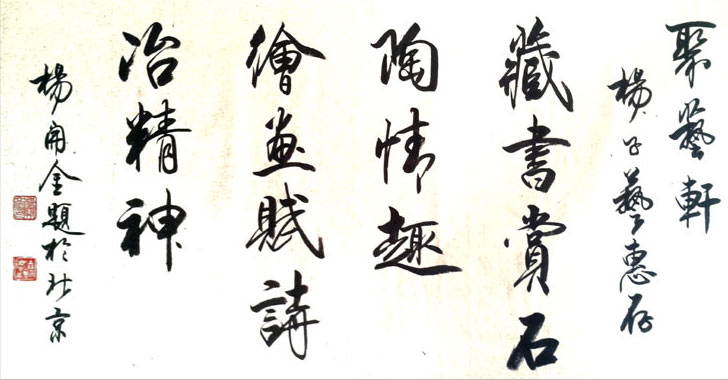 聚藝軒
楊子藝惠存
藏書賞石
陶情趣
繪畫賦詩
冶精神
楊開金題於北京